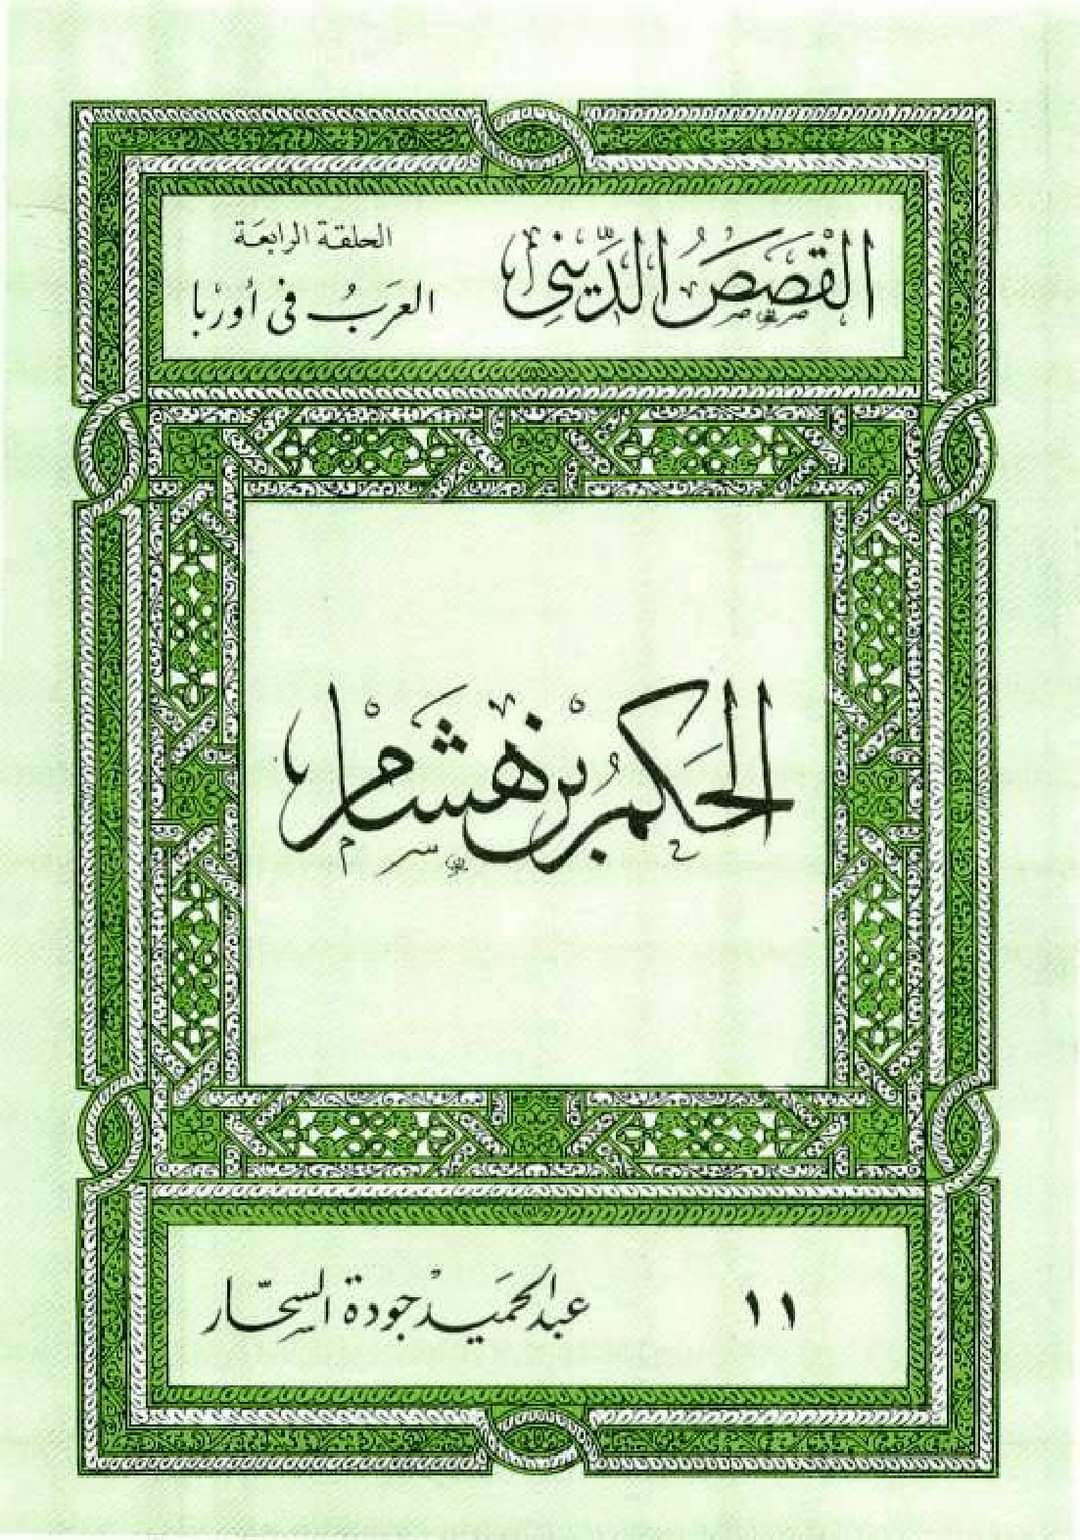 القَصَصُ الدِّينِى
الحلقة الرابعة
العَرَبُ فى أورْبا
الحَكَمُ بْن هِشَامْ
١١
عبد الحَميدْ جودة السحَّار